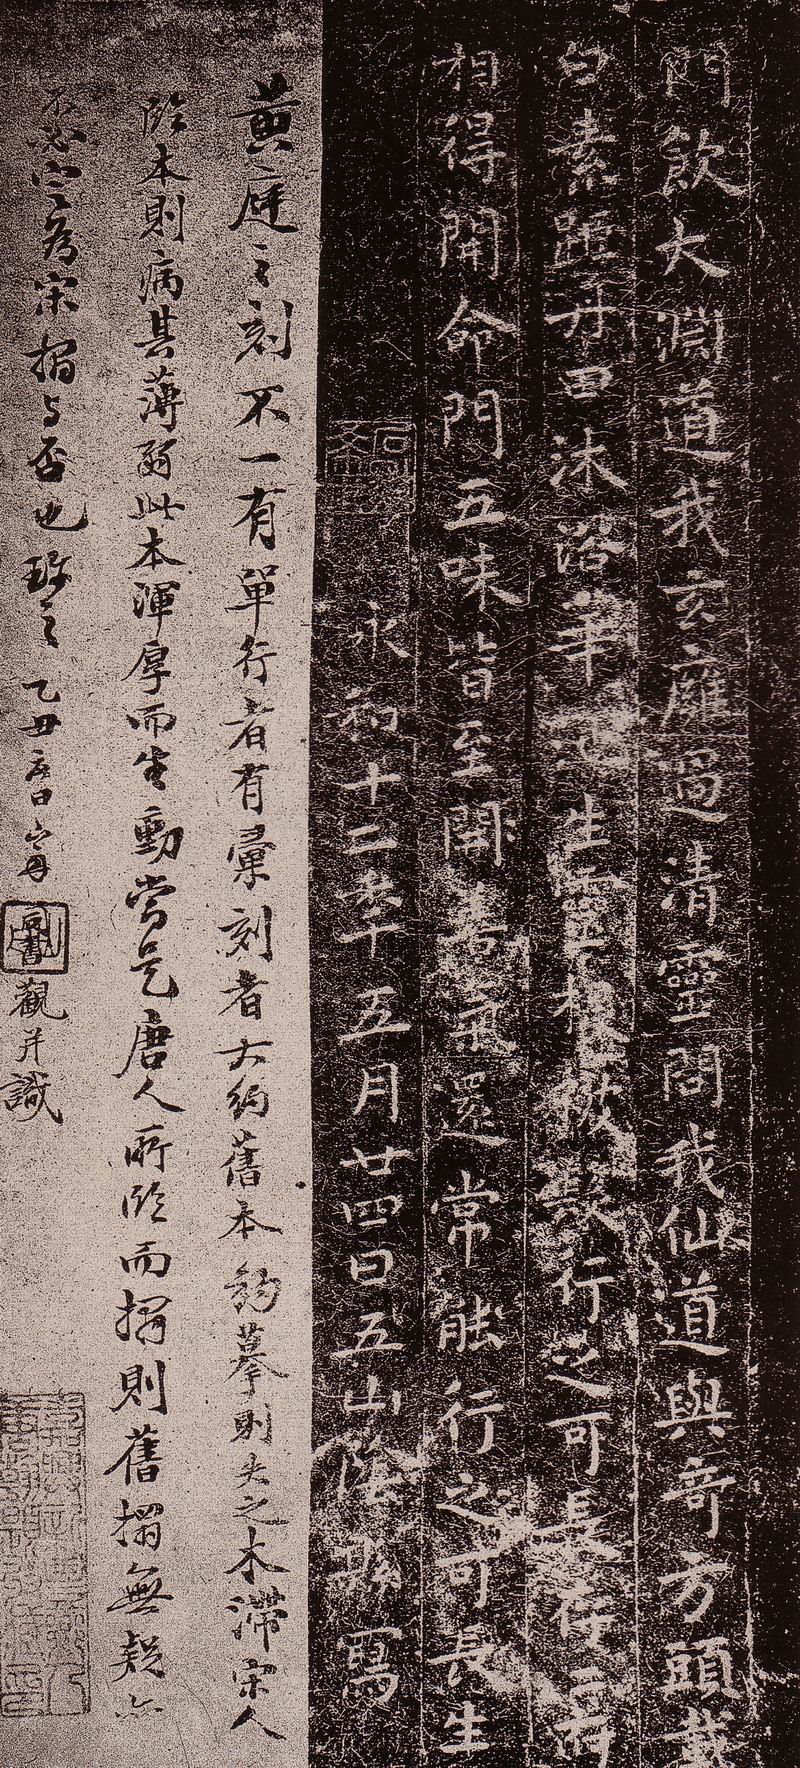 門飲大淵道我玄廱過清靈問我仙道與奇方頭載
白素距丹田沐浴華生靈根被髮行之可長存二府
相得開命門五味皆至開善氣還常能行之可長生
永和十二年五月廿四日五山陰縣寫
黃庭之刻不一有單行者有彙刻者大約舊本鈎摹則失之木滯宋人
臨本則病其薄弱此本渾厚而生動當是唐人所臨而搨則舊搨無疑亦
不必定為宋搨与否也
乙丑
觀并識